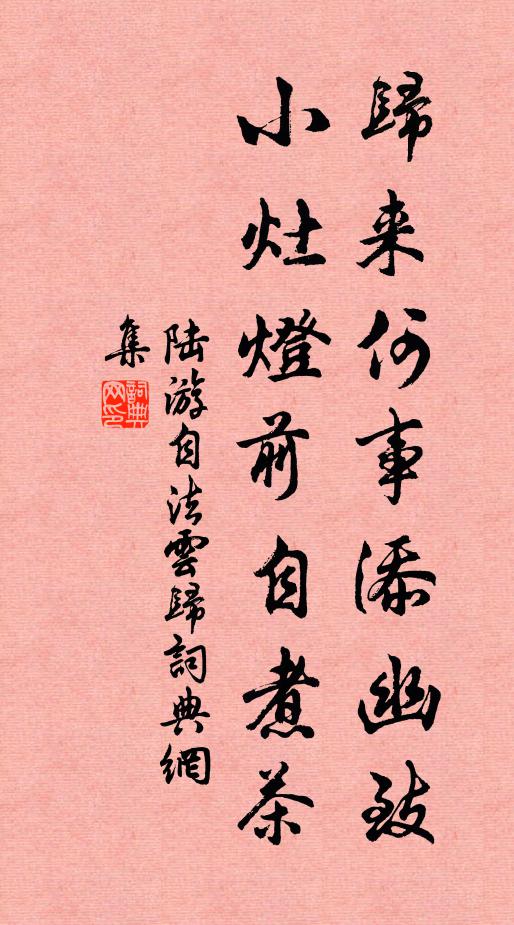 歸来何事添幽致
小灶燈前自煮茶
陆游自法雲歸詞典網
集
詞典
网印